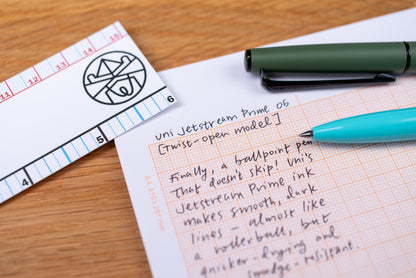 11 12 13 14 15
4 5 6
uni Jetstream Prime 05
[Twist-open model]
Finally, a ballpoint pen
that doesn't skip! Uni's
Jetstream Prime ink
makes smooth, dark
lines - almost like
a rollerball, but
quicker-drying and
smudge-resistant.